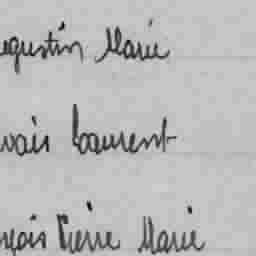 ugustin Marie
vais Laurent
nçois Pierre Marie